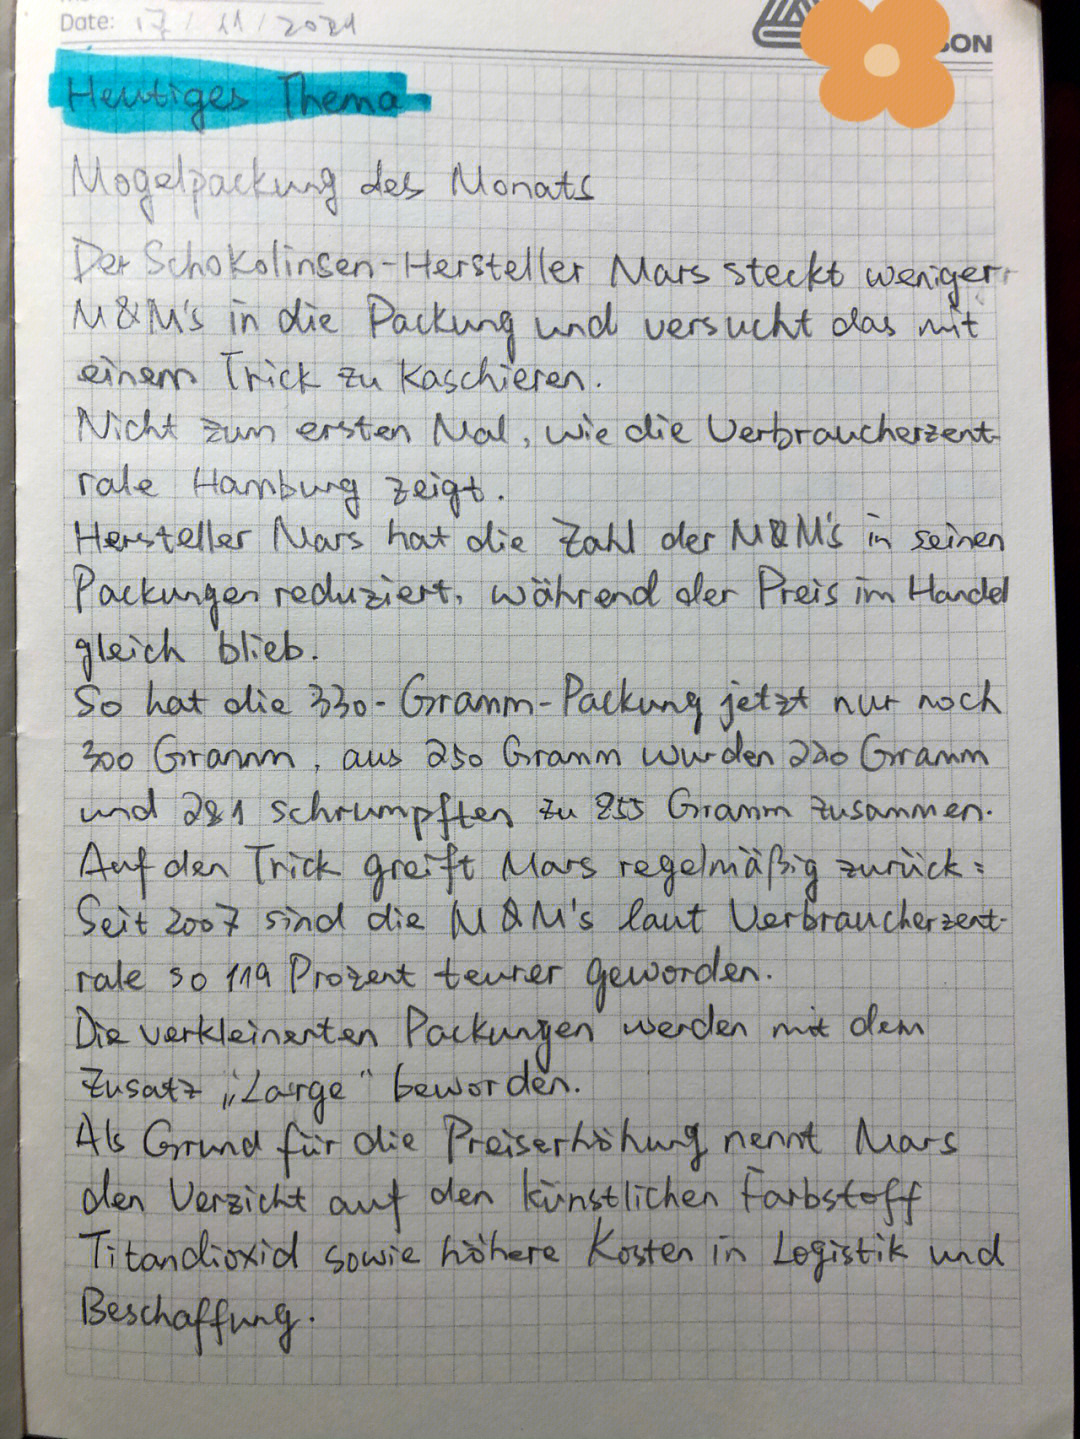 Date: 17/11/2021
SON
Heutiges Thema
Mogelpackung des Monats
Der Schokolinsen-Hersteller Mars steckt weniger
M&M's in die Packung und versucht das mit
einem Trick zu kaschieren.
Nicht zum ersten Mal, wie die Verbraucherzent-
rale Hamburg zeigt.
Hersteller Mars hat die Zahl der M&M's in seinen
Packungen reduziert, während der Preis im Handel
gleich blieb.
So hat die 330-Gramm-Packung jetzt nur noch
300 Gramm, aus 250 Gramm wurden 220 Gramm
und 281 schrumpften zu 255 Gramm zusammen.
Auf den Trick greift Mars regelmäßig zurück:
Seit 2007 sind die M&M's laut Verbraucherzent-
rale so 119 Prozent teurer geworden.
Die verkleinerten Packungen werden mit dem
Zusatz „Large“ beworden.
Als Grund für die Preiserhöhung nennt Mars
den Verzicht auf den künstlichen Farbstoff
Titandioxid sowie höhere Kosten in Logistik und
Beschaffung.